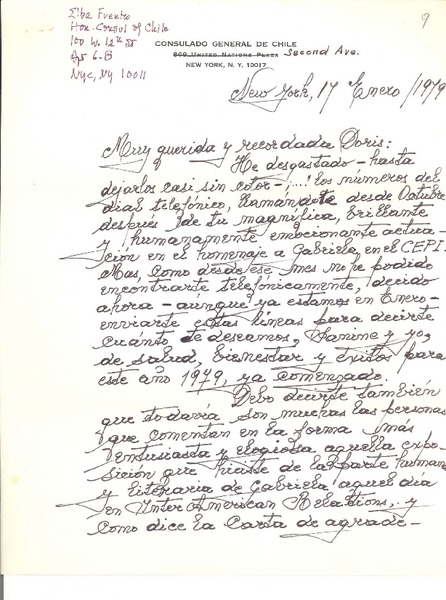 Elba Fuentes
Hon. Consul of Chile
100 W. 12th St
Ap 6-B
Nyc, Ny 10011
9
CONSULADO GENERAL DE CHILE
809 UNITED NATIONS PLAZA Second Ave.
NEW YORK, N. Y. 10017
New York, 17 Enero/1979
Muy querida y recordada Doris:
He desgastado - hasta
dejarlos casi sin color -¡...! los números del
dial telefónico, llamandote desde Octubre
después de tu magnífica, brillante
y humanamente emocionante actua-
ción en el homenaje a Gabriela en el CEPI.
Mas, como desde ese mes no he podido
encontrarte telefónicamente, decido
ahora - aunque ya estamos en Enero-
enviarte estas líneas para decirte
cuánto te deseamos, Janine y yo,
de salud, bienestar y éxitos para
este año 1979, ya comenzado.
Debo decirte también
que todavía son muchas las personas
que comentan en la forma más
entusiasta y elogiosa aquella expo-
sición que hiciste de la parte humana
y literaria de Gabriela aquel día
en Inter American Relations, y
como dice la Carta de agrade-